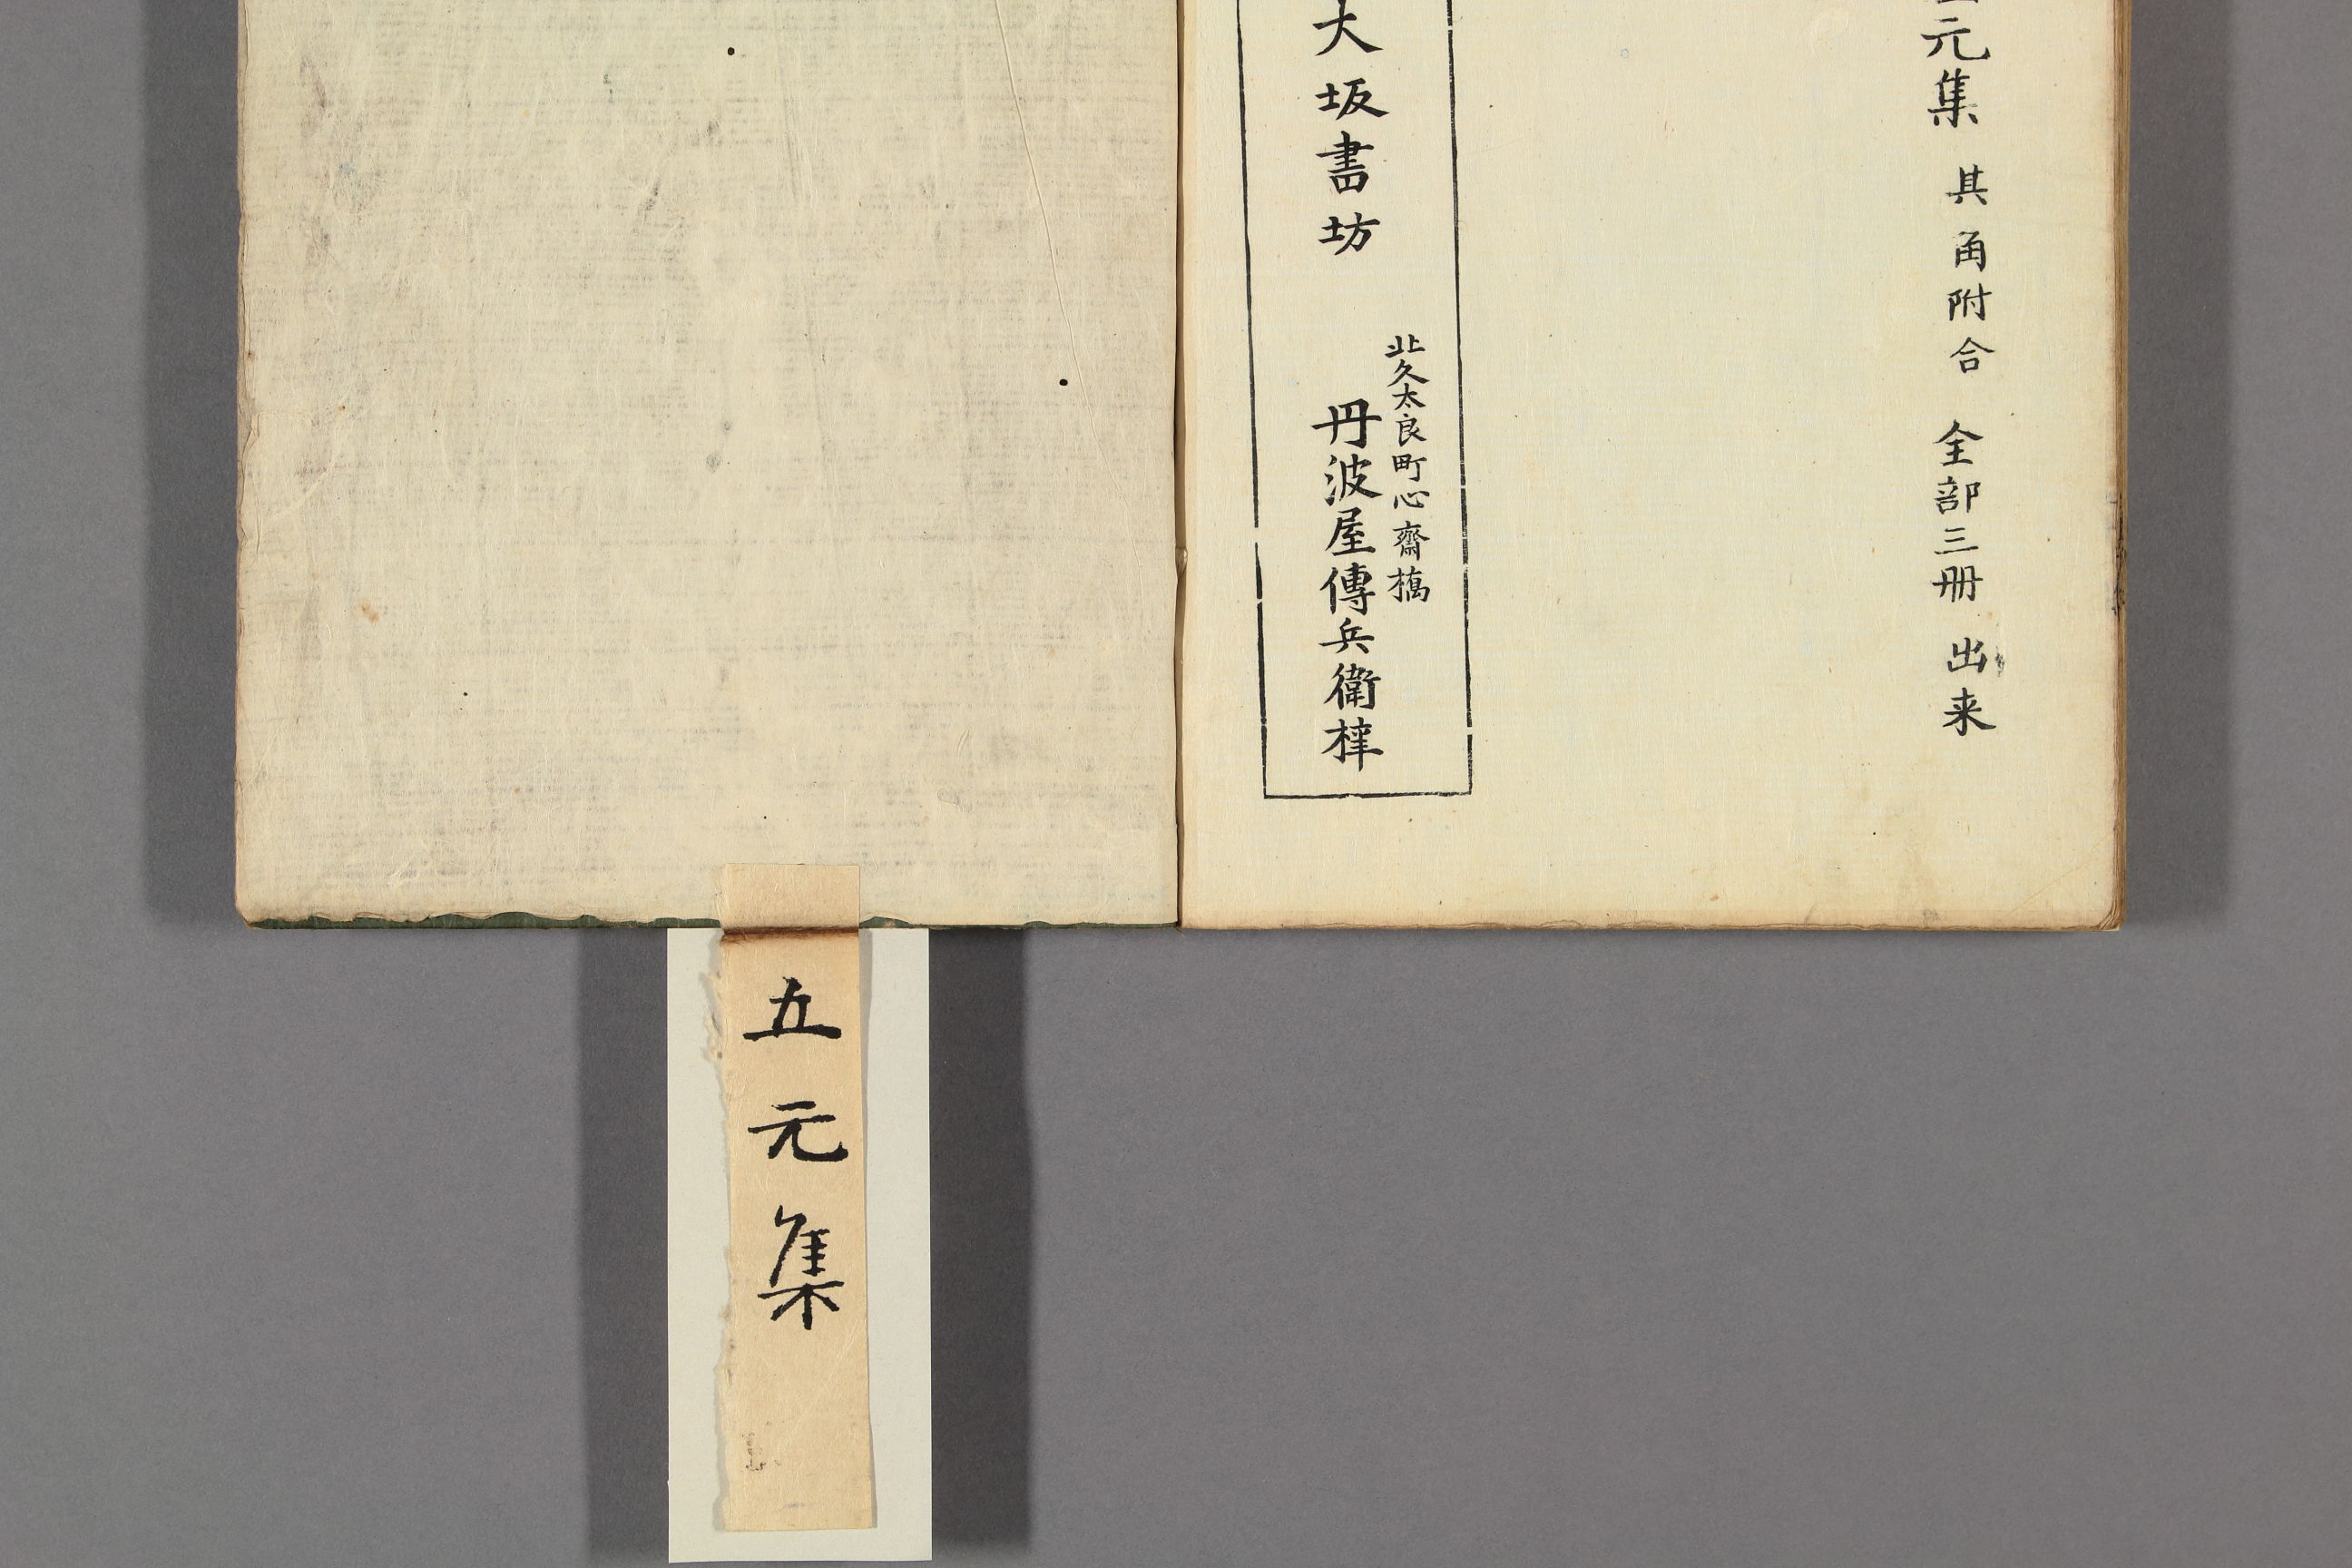 元集 其角附合 全部三册 出来
北久太良町心齋橋
大坂書坊 丹波屋傳兵衛梓
五元集